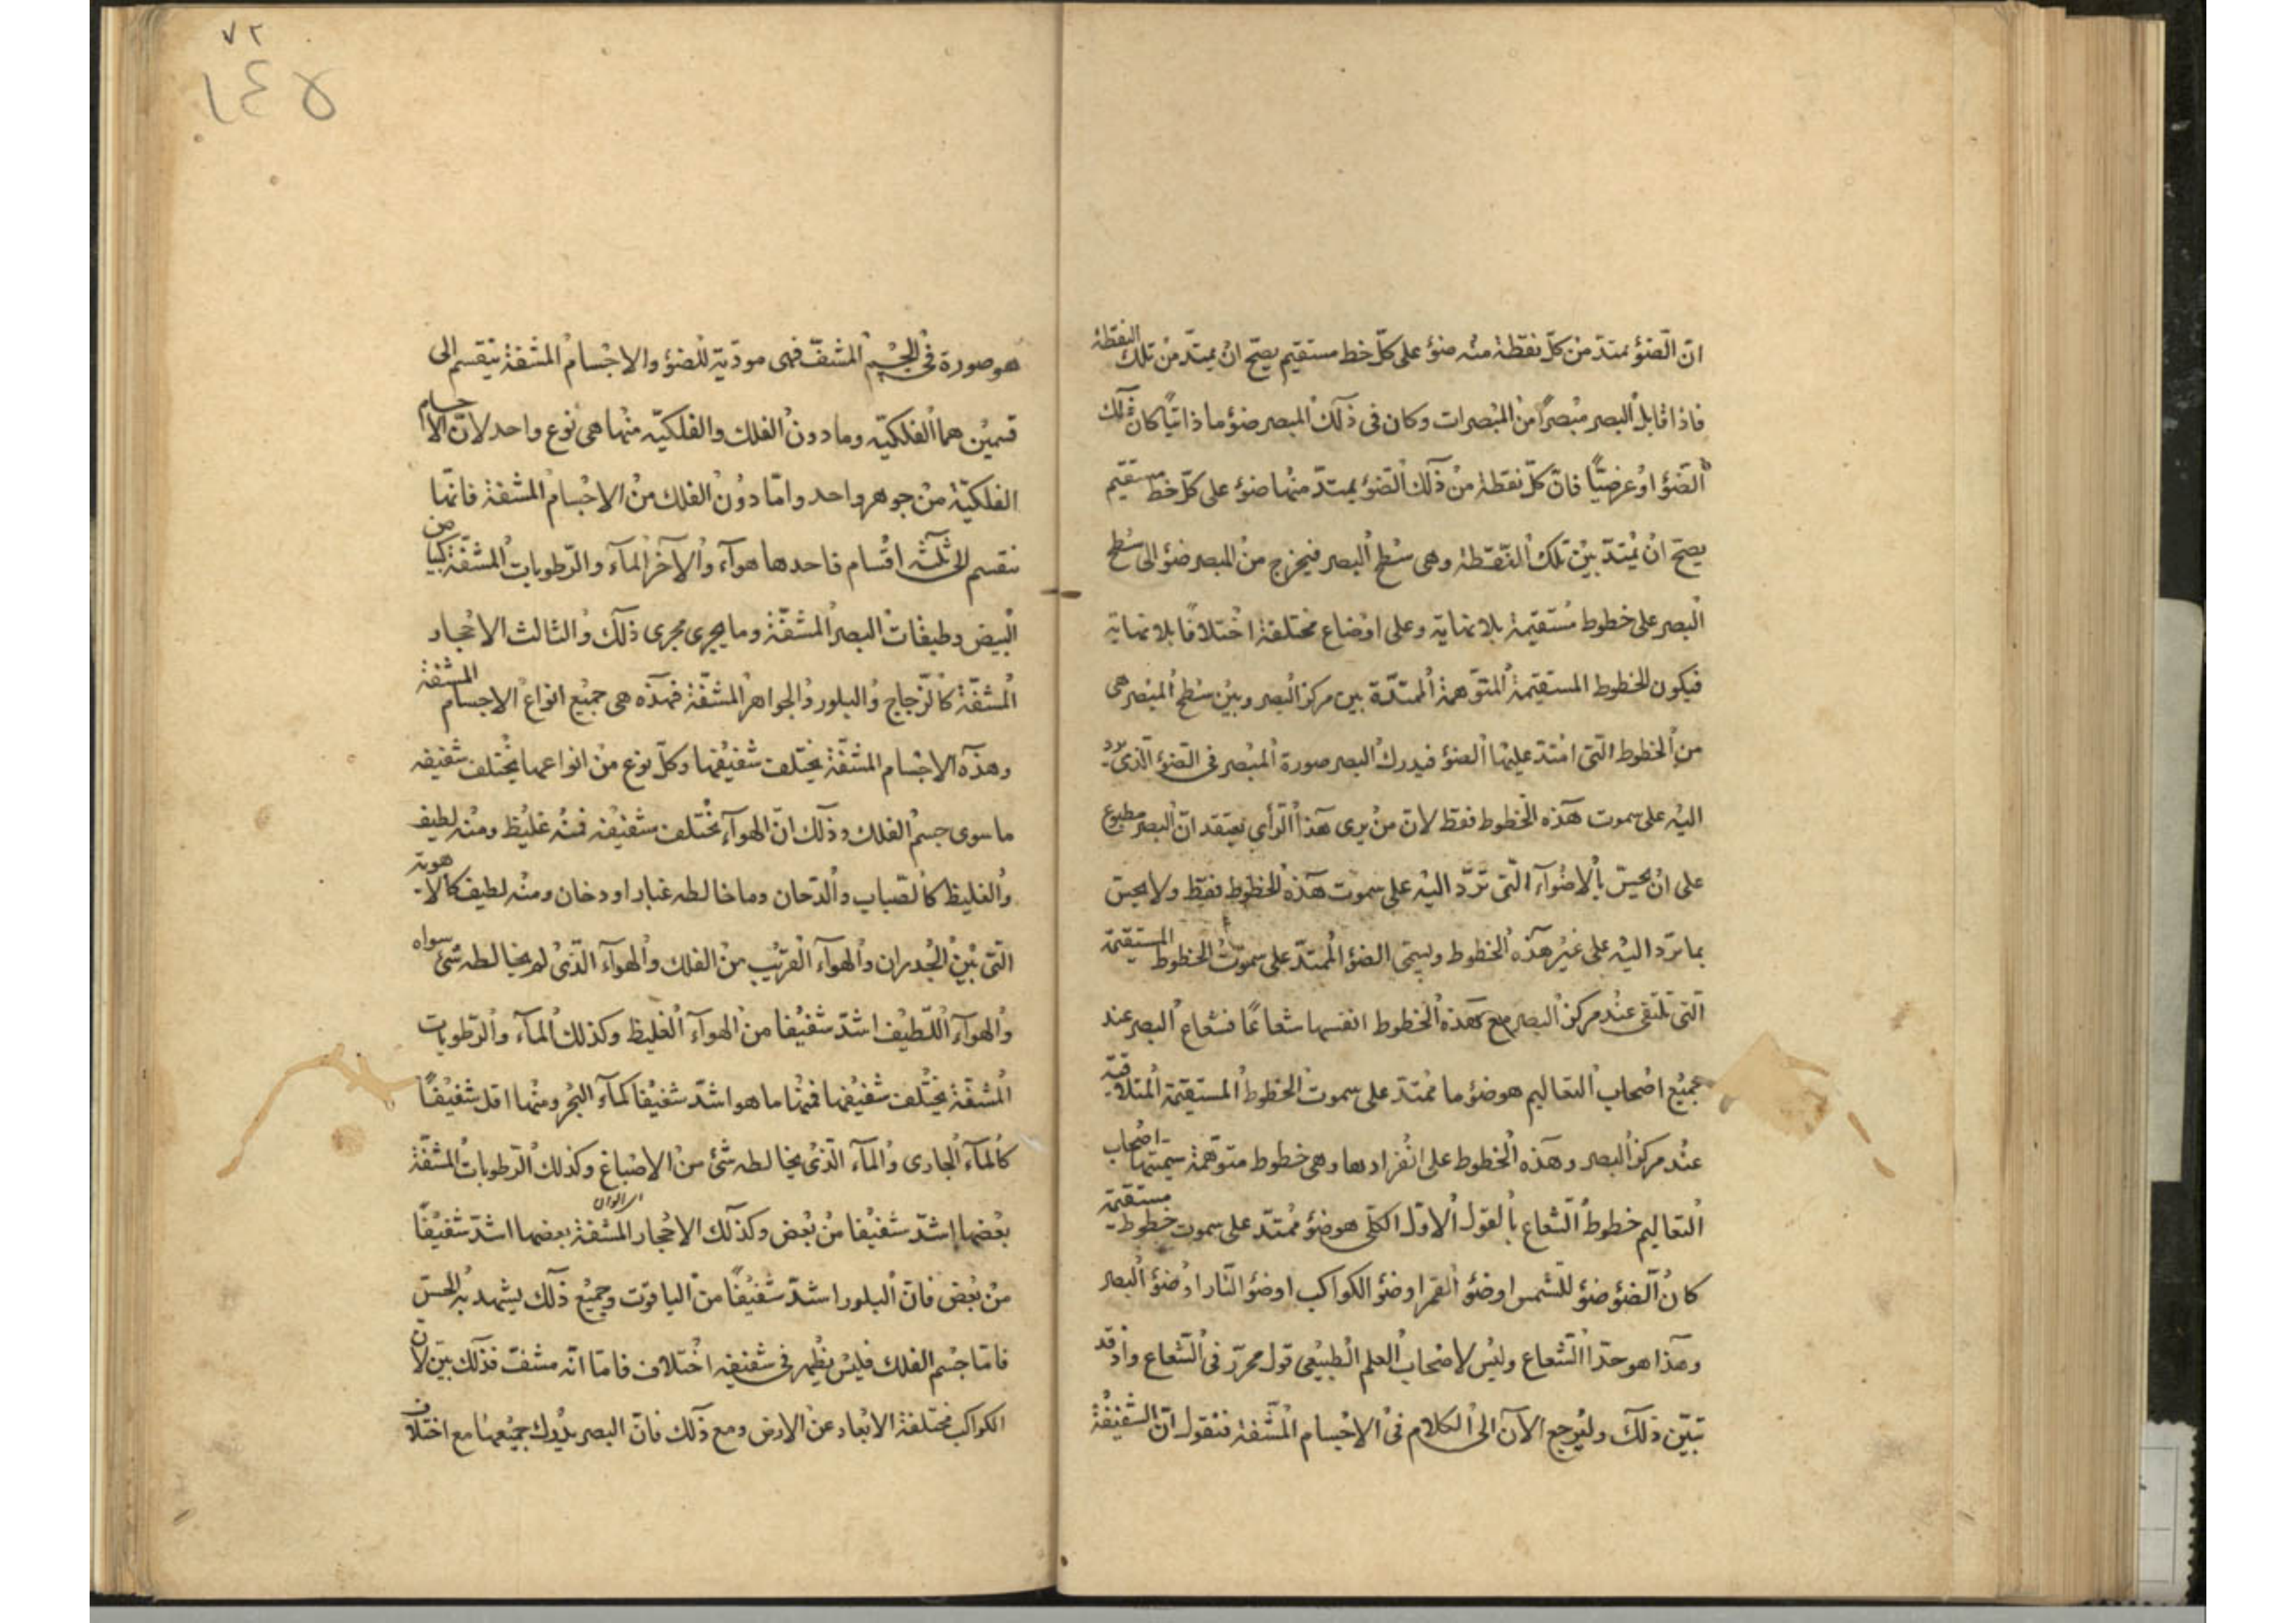 انّ الضوٴ يمتدّ من كلّ نقطة منه ضوٴ على كلّ خط مستقيم يصحّ ان يمتدّ من تلك النقطة
فاذا قابل البصر مبصرًا من المبصرات وكان فى ذلك المبصر ضوٴ ما ذاتيًا كان ذلك
الضوٴ او عرضيًّا فانّ كلّ نقطة من ذلك الضوٴ يمتدّ منها ضوٴ على كلّ خط مستقيم
يصحّ ان يمتدّ بين تلك النقطة وهى سطح البصر فيخرج من المبصر ضوٴ الى سطح
البصر على خطوط مستقيمة بلا نهاية وعلى اوضاع مختلفة اختلافًا بلا نهاية
فيكون الخطوط المستقيمة المتوهمة الممتدّة بين مركز البصر وبين سطح المبصر هى
من الخطوط التى امتدّ عليها الضوٴ فيدرك البصر صورة المبصر فى الضوٴ الّذى يرد
اليه على سموت هذه الخطوط فقط لانّ من يرى هذا الرأي يعتقد انّ البصر مطبوع
على ان يحسّ بالاضوآء التى تردّ اليه على سموت هذه الخطوط فقط ولا يحسّ
بما تردّ اليه على غير هذه الخطوط ويسمّى الضوٴ الممتدّ على سموت الخطوط المستقيمة
التى تلتقى عند مركز البصر مع هذه الخطوط انفسها شعاعًا فشعاع البصر عند
جميع اصحاب التعاليم هو ضوٴ ما ممتدّ على سموت الخطوط المستقيمة المتلاقية
عند مركز البصر وهذه الخطوط على انفرادها وهى خطوط متوهّمة سمّيتها اصحاب
التعاليم خطوط الشعاع بالقول الاوّل الكلّى هو ضوٴ ممتدّ على سموت خطوط مستقيمة
كان الضوٴ ضوٴ للشمس او ضوٴ القمر او ضوٴ الكواكب او ضوٴ النّار او ضوٴ البصر
وهذا هو حدّ الشعاع وليس لاصحاب العلم الطبيعى قول محرّر فى الشعاع واذ قد
تبيّن ذلك وليرجع الآن الى الكلام فى الاجسام المشفة فنقول انّ الشفيفة
هو صورة فى الجسم المشفّ فهى مودّية للضوٴ والاجسام المشفة ينقسم الى
قسمين هما الفلكيّه وما دون الفلك والفلكيّه منها هى نوع واحد لانّ الاجسام
الفلكيّة من جوهر واحد وامّا دون الفلك من الاجسام المشفة فانها
تنقسم الى ثلثه اقسام فاحدها هوآء والآخر المآء والرّطوبات المشفّة كبياض
البيض وطبقات البصر المشفّة وما يجرى مجرى ذلك والثالث الاحجار
المشفّة كالزّجاج والبلور والجواهر المشفّة فهذه هى جميع انواع الاجسام المشفة
وهذه الاجسام المشفّة يختلف شفيفها وكلّ نوع من انواعها يختلف شفيفه
ما سوى جسم الفلك وذلك انّ الهوآء يختلف شفيفه فمنه غليظ ومنه لطيف
والغليظ كالضباب والدّخان وما خالطه غبار او دخان ومنه لطيف كالاهوية
التى بين الجدران والهوآء القريب من الفلك والهوآء الذى لم يخالطه شئ سواه
والهوآء اللّطيف اشدّ شفيفا من الهوآء الغليظ وكذلك المآء والرّطوبات
المشفّة يختلف شفيفها فمنها ما هو اشدّ شفيفا كمآء البحر ومنها اقل شفيفًا
كالمآء الجارى والمآء الّذى يخالطه شئ من الاصباغ وكذلك الرّطوبات المشفّة
بعضها اشدّ شفيفا من بعض وكذلك الاحجار المشفة بعضها اشدّ شفيفًا
من بعض فانّ البلور اشدّ شفيفًا من الياقوت وجميع ذلك يشهد به الحسّ
فامّا جسم الفلك فليس يظهر فى شفيفه اختلاف فامّا انّه مشفّ فذلك بيّن لانّ
الكواكب مختلفة الابعاد عن الارض ومع ذلك فانّ البصر يدرك جميعها مع اختلاف
٧٢
١٤٥